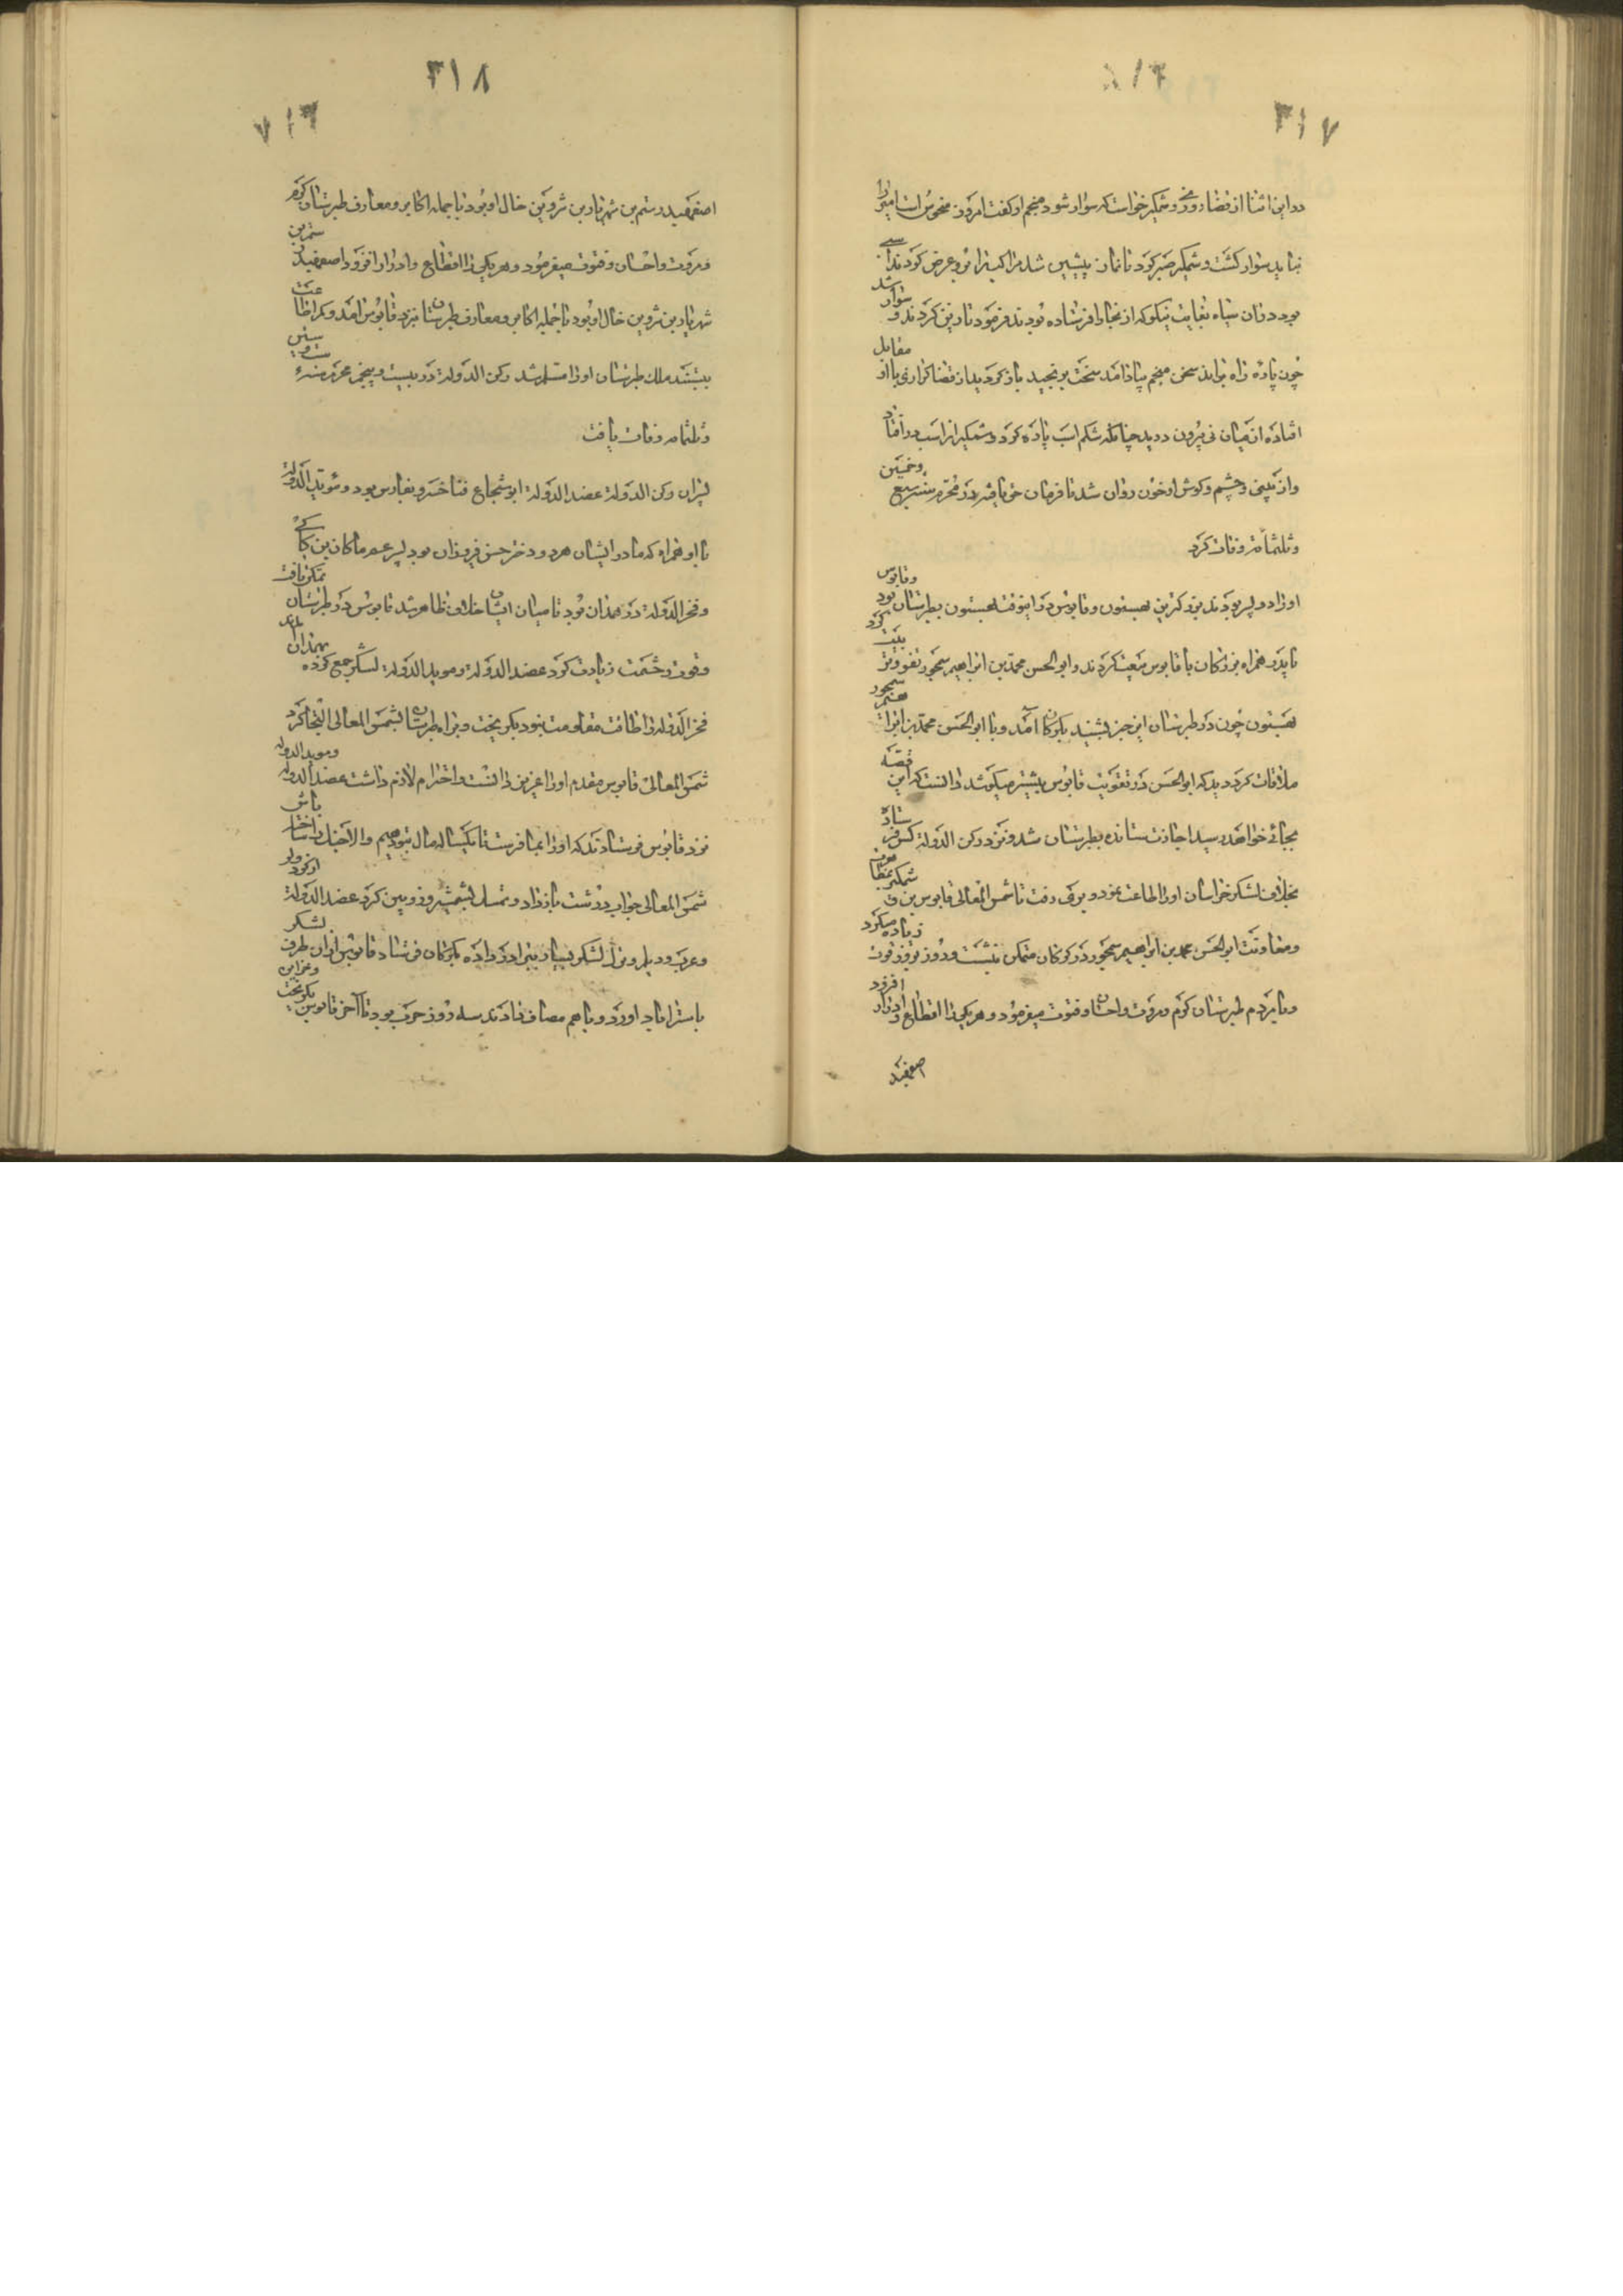 ۳۱۷
در این اثنا از قضا روزی وشمگیر خواست که سوار شود منجم او گفت امروز منحوس است امیر را
نباید سوار گشت وشمگیر صبر کرد تا نماز پیشین شد مراکب را برو عرض کردند اسبی
بود در آن سیاه بغایت نیکو که از بخارا فرستاده بودند فرمود تا زین کردند و سوار شد
چون پاره راه براند سخن منجم بیاد آمد سخت برنجید باز گردید از قضا گرازی با او مقابل
افتاده از میان نی بیرون دوید چنانکه شکم اسب پاره کرد وشمگیر از اسب در افتاد
و از بینی و چشم و گوش او خون روان شد تا فرمان حق یافت در محرم سنه سبع و خمسین
و ثلثمائه وفات کرد
او را دو پسر بودند بزرگترین بهستون و قابوس در اینوقت بهستون بطبرستان بود و قابوس
با پدر همراه بزرگان با قابوس بیعت کردند و ابو الحسن محمد بن ابراهیم سمجور تقویت کرد
بهستون چون در طبرستان این خبر بشنید بگرگان آمد و با ابو الحسن محمد بن ابراهیم سمجور
ملاقات کرد دید که ابو الحسن در تقویت قابوس بیشتر میکوشد دانست که این قصه
بجائی خواهد رسید اجازت ستانده بطبرستان شد و نزد رکن الدوله کس فرستاد
بخلاف لشکر خراسان او را اطاعت نمود و بری رفت تا شمس المعالی قابوس بن وشمگیر
و معاونت ابو الحسن محمد بن ابراهیم سمجور در گرگان متمکن بنشست و روز بروز قوت زیاده میکرد
و با مردم طبرستان کرم و مروت و احسان و فتوت میفرمود و هر یکی را اقطاع و ادرار افزود
اصفهبد
۳۱۸
اصفهبد رستم بن شهریار بن شروین خال او بود با جمله اکابر و معارف طبرستان کرم
و مروت و احسان و فتوت میفرمود و هر یکی را اقطاع و ادرار افزود اصفهبد رستم بن
شهریار بن شروین خال او بود با جمله اکابر و معارف طبرستان نزد قابوس آمد و کمر اطاعت
ببستند ملک طبرستان او را مسلم شد رکن الدوله در بیست و پنجم محرم سنه ست و ستین
و ثلثمائه وفات یافت
پسران رکن الدوله عضد الدوله ابو شجاع فنا خسرو بفارس بود و مؤید الدوله
با او همراه که مادر ایشان هر دو دختر حسن فیروزان بود پسر عم ماکان بن کاکی
و فخر الدوله در همدان بود تا میان ایشان خلاف ظاهر شد قابوس در طبرستان تمکن یافت
و قوت و حشمت زیادت کرد عضد الدوله و موید الدوله لشکر جمع کرده بهمدان
فخر الدوله را طاقت مقاومت نبود بگریخت و براه طبرستان بشمس المعالی التجا کرد
شمس المعالی قابوس مقدم او را عزیز دانست و احترام لازم داشت عضد الدوله و موید الدوله
نزد قابوس فرستادند که او را بما فرست تا یکساله مال بتو دهیم والا جنک را ساخته باش
شمس المعالی جواب درشت باز داد و تمسک بشمشیر و زوبین کرد عضد الدوله
و عرب و دیلم و ترک لشکر بسیار ببرادر داده بگرگان فرستاد قابوس از آن طرف لشکر
باستراباد آورد و با هم مصاف دادند سه روز حرب بود تا آخر قابوس بگریخت